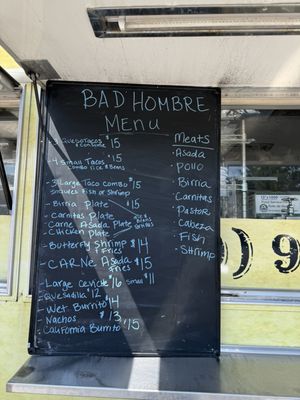 BAD HOMBRE
MENU
- 3 QuesoTacos $15
& Consome
- 4 Small Tacos $15
combo rice & Beans
- 3 Large Taco combo $15
Includes Fish or Shrimp
- Birria Plate $15
- Carnitas Plate
- Carne Asada Plate
- Chicken Plate
Rice & Beans
tortillas
- Butterfly Shrimp $14
& Fries
- CARNe Asada $15
fries
- Large Ceviche $16 Small $11
- Quesadilla $12
- Wet Burrito $14
- Nachos $13
- California Burrito $15
Meats
- Asada
- Pollo
- Birria
- Carnitas
- Pastor
- Cabeza
- Fish
- Shrimp
) 9